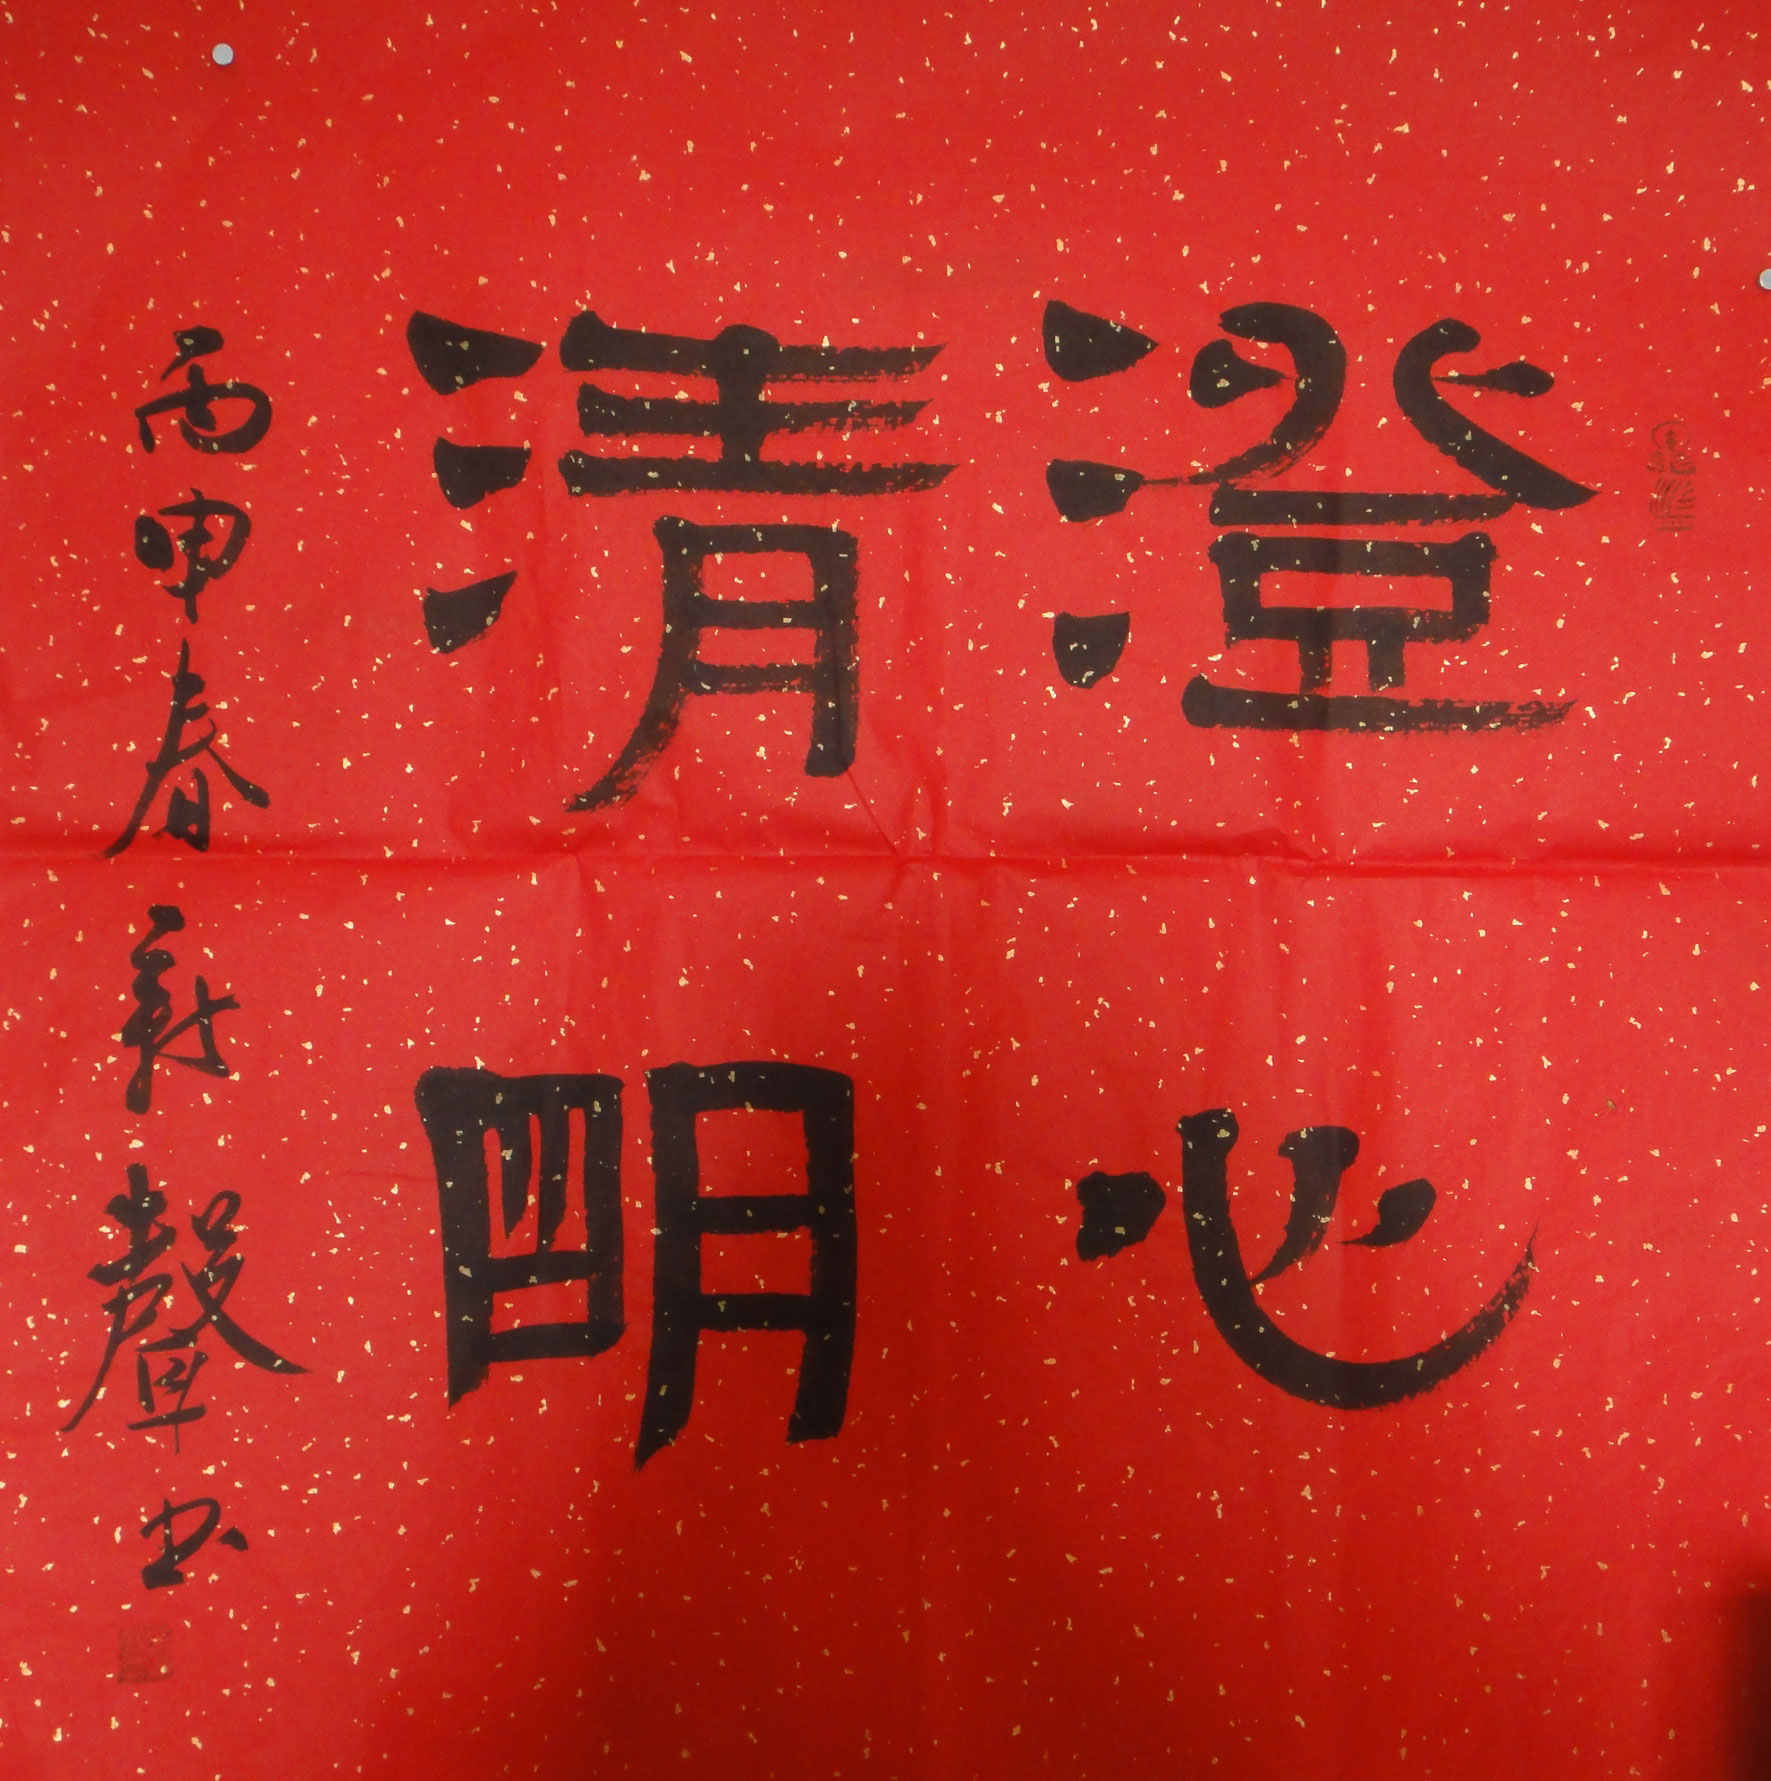 澄心
清明
丙申春新聲书